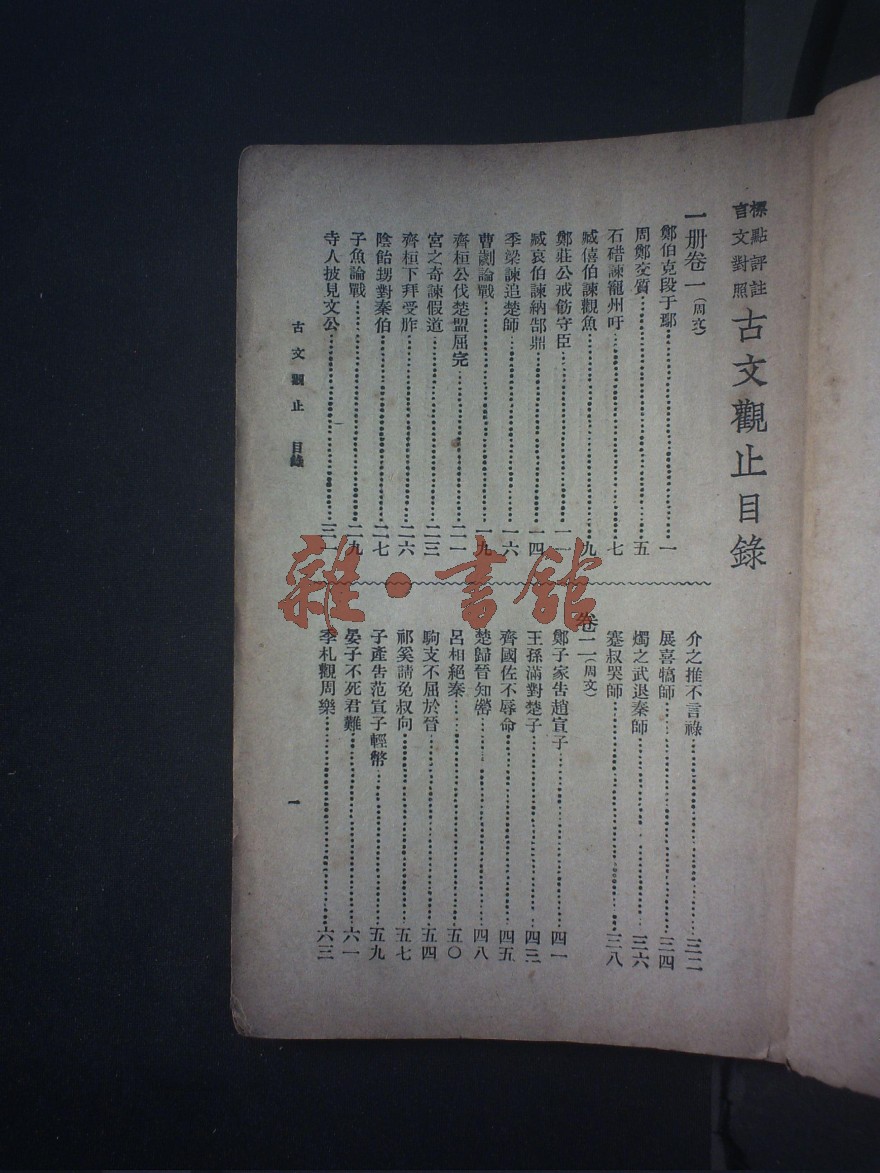 標點評註
言文對照
古文觀止目錄
一册卷一(周文)
鄭伯克段于鄢 一
周鄭交質 五
石碏諫寵州吁 七
臧僖伯諫觀魚 九
鄭莊公戒飭守臣 一一
臧哀伯諫納郜鼎 一四
季梁諫追楚師 一六
曹劌論戰 一九
齊桓公伐楚盟屈完 二一
宮之奇諫假道 二三
齊桓下拜受胙 二六
陰飴甥對秦伯 二七
子魚論戰 二九
寺人披見文公 三一
介之推不言祿 三二
展喜犒師 三四
燭之武退秦師 三六
蹇叔哭師 三八
卷二(周文)
鄭子家告趙宣子 四一
王孫滿對楚子 四三
齊國佐不辱命 四五
楚歸晉知罃 四八
呂相絕秦 五〇
駒支不屈於晉 五四
祁奚請免叔向 五七
子產告范宣子輕幣 五九
晏子不死君難 六一
季札觀周樂 六三
古文觀止 目錄
一
雜·書館